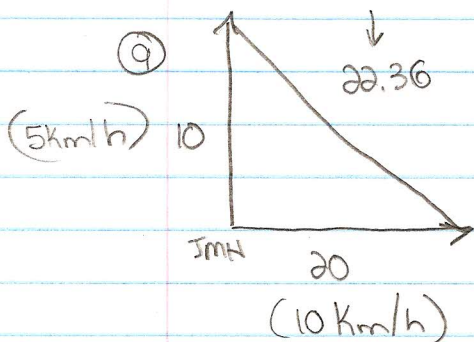 a
22.36
(5km/h) 10
JMH
20
(10 Km/h)